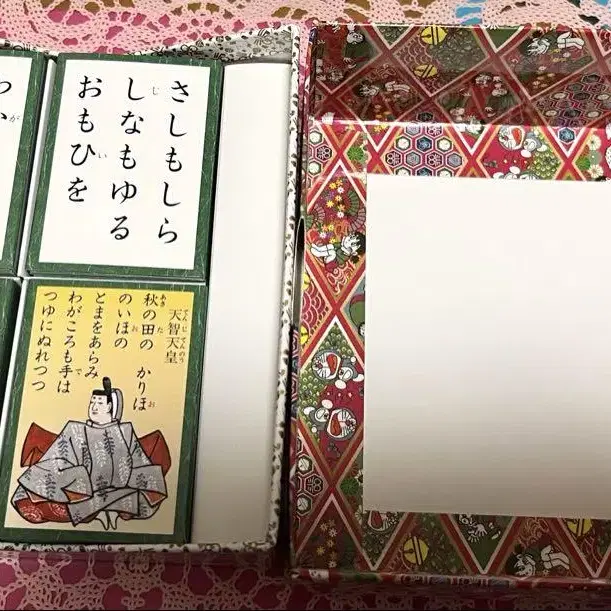 さしもしら
しなもゆる
おもひを
天智天皇
秋の田の かりほ
のいほの
とまをあらみ
わがころも手は
つゆにぬれつつ